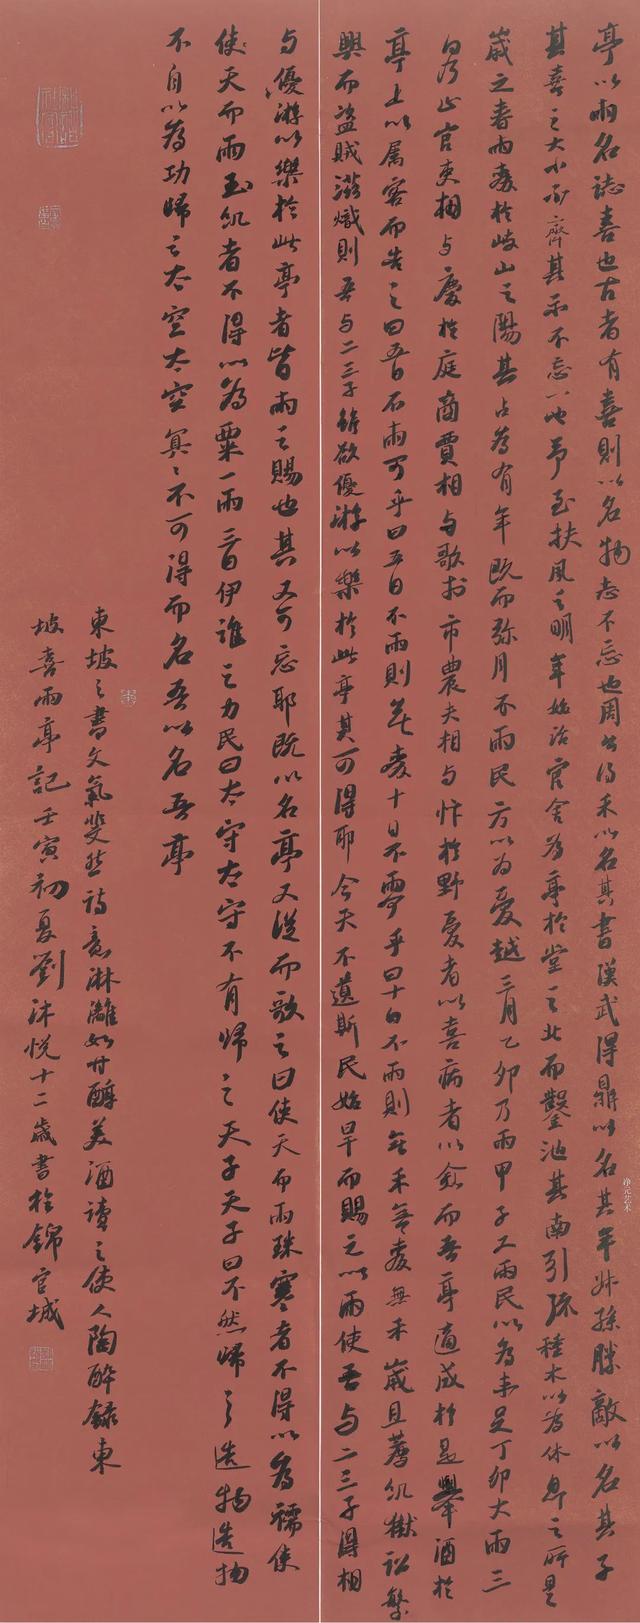 亭以雨名誌喜也古者有喜則以名物志不忘也周公得禾以名其書漢武得鼎以名其年叔孫勝敵以名其子
其喜之大小不齊其示不忘一也予至扶風之明年始治官舍為亭於堂之北而鑿池其南引流種木以為休息之所是
歲之春雨麥於岐山之陽其占為有年既而弥月不雨民方以為憂越三月乙卯乃雨甲子又雨民以為未足丁卯大雨三
日乃止官吏相与慶於庭商賈相与歌於市農夫相与忭於野憂者以喜病者以愈而吾亭適成於是舉酒於
亭上以属客而告之曰五日不雨可乎曰五日不雨則無麥十日不雨可乎曰十日不雨則無禾無麥無禾歲且薦飢獄訟繁
興而盜賊滋熾則吾与二三子雖欲優游以樂於此亭其可得耶今天不遺斯民始旱而賜之以雨使吾与二三子得相
与優游以樂於此亭者皆雨之賜也其又可忘耶既以名亭又從而歌之曰使天而雨珠寒者不得以為襦使
使天而雨玉飢者不得以為粟一雨三日伊誰之力民曰太守太守不有歸之天子天子曰不然歸之造物造物
不自以為功歸之太空太空冥冥不可得而名吾以名吾亭
東坡之書文氣斐然詩意淋灕如甘醇美酒讀之使人陶醉錄東
坡喜雨亭記壬寅初夏劉沐悅十二歲書於錦官城
净元艺术